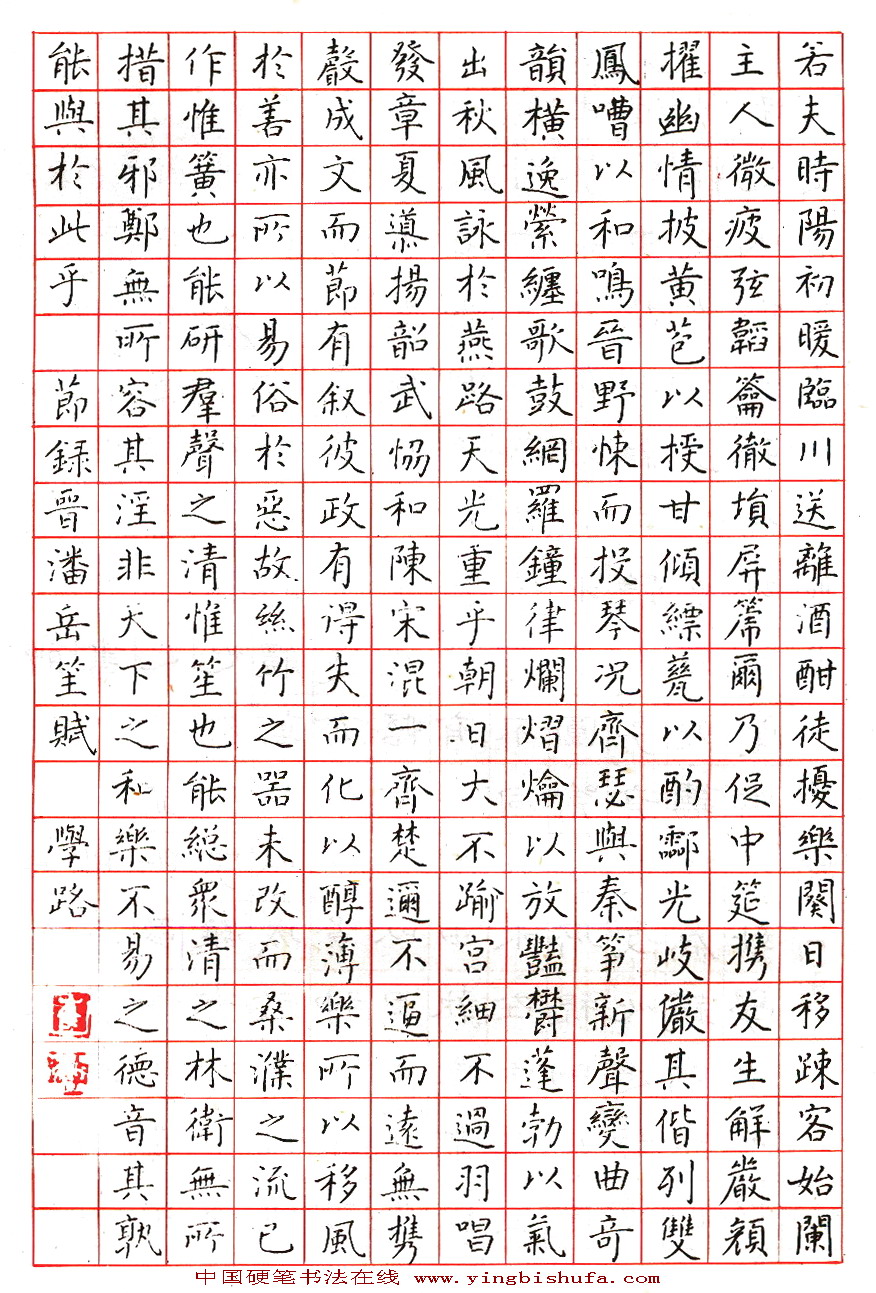 若夫時陽初暖臨川送離酒酣徒擾樂闋日移疎客始闌
主人微疲弦韜籥徹塤屏篪爾乃促中筵攜友生解嚴顏
擢幽情披黃苞以授甘傾縹甆以酌酃光岐儼其偕列雙
鳳嘈以和鳴晉野悚而投琴况齊瑟與秦箏新聲變曲奇
韻橫逸縈纏歌鼓網羅鐘律爛熠爚以放豔欝蓬勃以氣
出秋風詠於燕路天光重乎朝日大不踰宮細不過羽唱
發章夏導揚韶武恊和陳宋混一齊楚邇不逼而遠無携
聲成文而節有叙彼政有得失而化以醇薄樂所以移風
於善亦所以易俗於惡故絲竹之器未改而桑濮之流已
作惟簧也能研羣聲之清惟笙也能総衆清之林衛無所
措其邪鄭無所容其淫非天下之和樂不易之德音其孰
能與於此乎 節録晉潘岳笙賦 學路
中国硬笔书法在线 www.yingbishufa.com